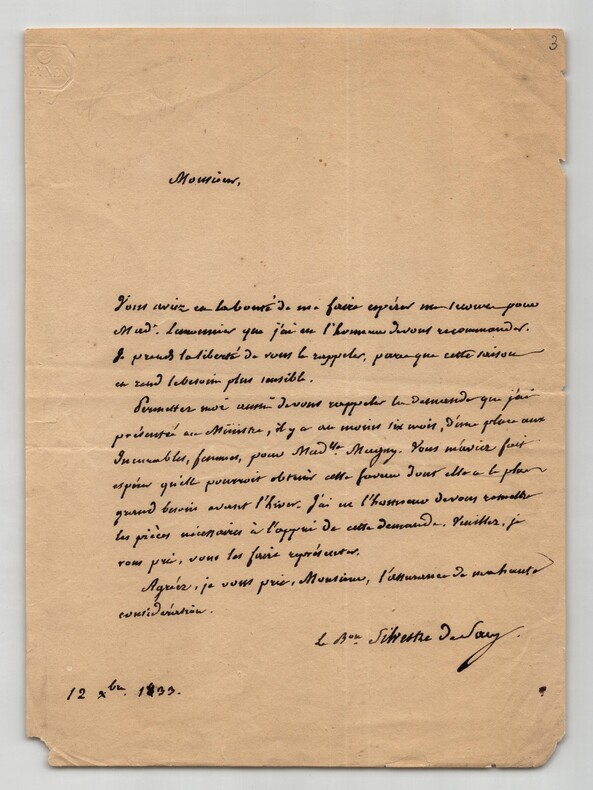 3
Monsieur,
Vous aviez eu la bonté de me faire espérer un secours pour
Mad.e Lemonnier que j'ai eu l'honneur de vous recommander.
Je prends la liberté de vous le rappeler, parceque cette saison
en rend le besoin plus sensible.
Permettez moi aussi de vous rappeler la demande que j'ai
présentée au Ministre, il y a au moins six mois, d'une place aux
Incurables, femmes, pour Mad.lle Magny. Vous m'aviez fait
espérer qu'elle pourroit obtenir cette faveur dont elle a le plus
grand besoin avant l'hiver. J'ai eu l'honneur de vous remettre
les pièces nécessaires à l'appui de cette demande. Veuillez, je
vous prie, vous les faire représenter.
Agréez, je vous prie, Monsieur, l'assurance de ma haute
considération.
le Bon Silvestre de Sacy.
12 xbre. 1833.